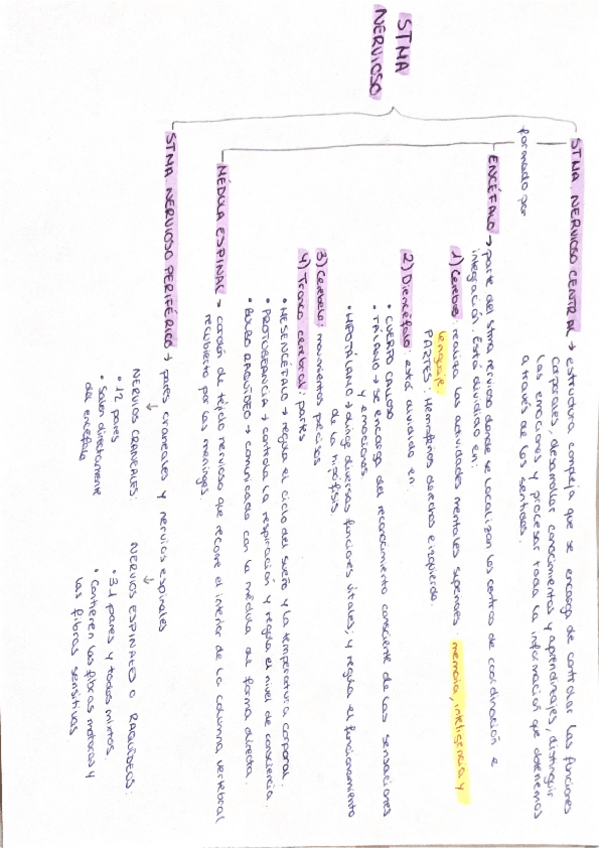 STMA
NERVIOSO
STMA. NERVIOSO CENTRAL → estructura compleja que se encarga de controlar las funciones
corporales, desarrollar conocimientos y aprendizajes, distinguir
las emociones y procesar toda la información que obtenemos
a través de los sentidos.
formado por
ENCÉFALO → parte del stma nervioso donde se localizan los centros de coordinación e
integración. Está dividido en:
1) Cerebro: realiza las actividades mentales superiores: memoria, inteligencia y
lenguaje
PARTES: Hemisferios derecho e izquierdo.
2) Diencéfalo: está dividido en
• CUERPO CALLOSO
• TÁLAMO → se encarga del reconocimiento consciente de las sensaciones
y emociones.
• HIPOTÁLAMO → dirige diversas funciones vitales; y regula el funcionamiento
de la hipófisis
3) Cerebelo: movimientos precisos
4) Tronco cerebral: partes
• MESENCÉFALO → regula el ciclo del sueño y la temperatura corporal.
• PROTUBERANCIA → controla la respiración y regula el nivel de consciencia.
• BULBO RAQUÍDEO → comunicado con la médula de forma directa.
MÉDULA ESPINAL → cordón de tejido nervioso que recorre el interior de la columna vertebral
recubierto por las meninges.
STMA NERVIOSO PERIFÉRICO → pares craneales y nervios espinales
NERVIOS CRANEALES:
• 12 pares
• Salen directamente
del encéfalo
NERVIOS ESPINALES O RAQUÍDEOS:
• 31 pares y todos mixtos.
• Contienen las fibras motoras y
las fibras sensitivas